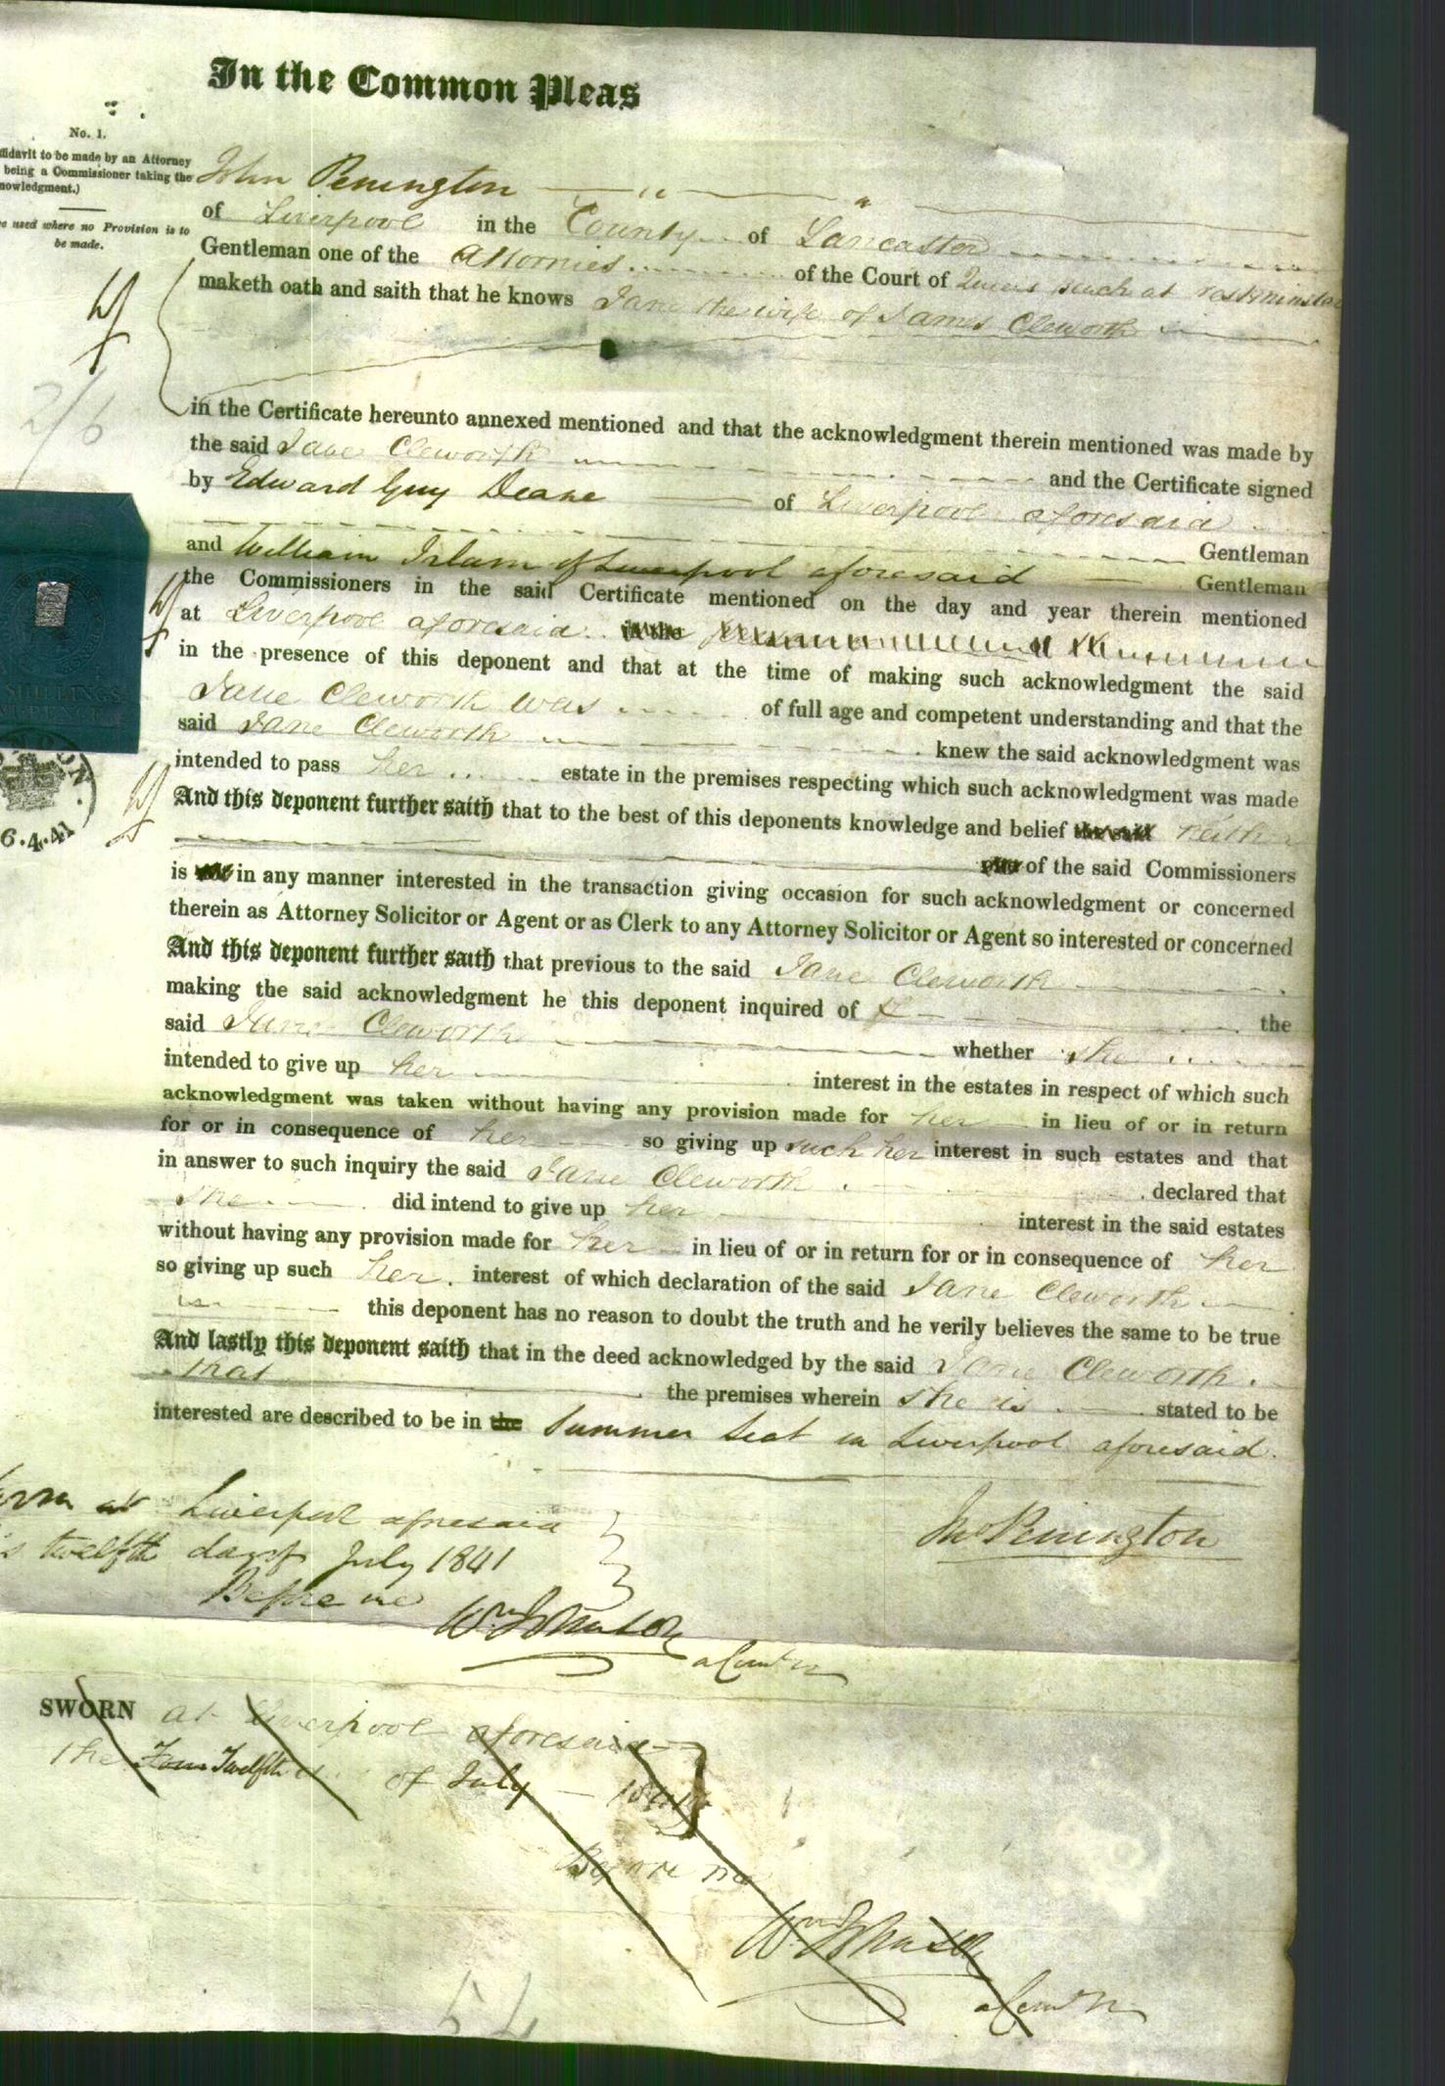 In the Common Pleas
No. 1.
ffidavit to be made by an Attorney
being a Commissioner taking the
nowledgment.)
e used where no Provision is to
be made.
John Penington
of Liverpool in the County of Lancaster
Gentleman one of the Attornies of the Court of Queens Bench at Westminster
maketh oath and saith that he knows Jane the wife of James Cleworth
2/6
in the Certificate hereunto annexed mentioned and that the acknowledgment therein mentioned was made by
the said Jane Cleworth and the Certificate signed
by Edward Guy Deane of Liverpool aforesaid
Gentleman
and William Islam of Liverpool aforesaid Gentleman
the Commissioners in the said Certificate mentioned on the day and year therein mentioned
at Liverpool aforesaid in the
in the presence of this deponent and that at the time of making such acknowledgment the said
Jane Cleworth was of full age and competent understanding and that the
said Jane Cleworth knew the said acknowledgment was
intended to pass her estate in the premises respecting which such acknowledgment was made
And this deponent further saith that to the best of this deponents knowledge and belief the said neither
of the said Commissioners
is in any manner interested in the transaction giving occasion for such acknowledgment or concerned
therein as Attorney Solicitor or Agent or as Clerk to any Attorney Solicitor or Agent so interested or concerned
And this deponent further saith that previous to the said Jane Cleworth
making the said acknowledgment he this deponent inquired of the
said Jane Cleworth whether she
intended to give up her interest in the estates in respect of which such
acknowledgment was taken without having any provision made for her in lieu of or in return
for or in consequence of her so giving up such her interest in such estates and that
in answer to such inquiry the said Jane Cleworth declared that
she did intend to give up her interest in the said estates
without having any provision made for her in lieu of or in return for or in consequence of her
so giving up such her interest of which declaration of the said Jane Cleworth
this deponent has no reason to doubt the truth and he verily believes the same to be true
And lastly this deponent saith that in the deed acknowledged by the said Jane Cleworth
that the premises wherein she is stated to be
interested are described to be in the Summer Seat in Liverpool aforesaid.
SHILLINGS
6.4.41
orn at Liverpool aforesaid
s twelfth day of July 1841
Before me
Wm Johnson
a Comr
Jno Penington
SWORN at Liverpool aforesaid
the Twelfth of July 1841
Before me
Wm Johnson
a Comr
54